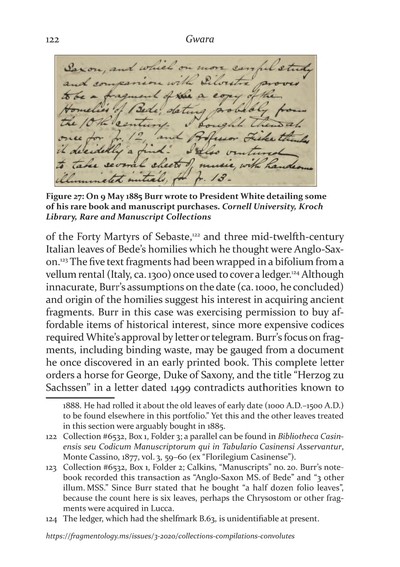 122
Gwara
Saxon, and which on more careful study
and comparison with Dilvestre proves
to be a fragment of a copy of the
Homilies of Bede, dating probably from
the 10th century. I bought them at
once for and Professor Fiske thinks
it decidedly a find. I also ventured
to take several sheets of music, with handsome
illuminated initials, for fr. 13.-
Figure 27: On 9 May 1885 Burr wrote to President White detailing some
of his rare book and manuscript purchases. Cornell University, Kroch
Library, Rare and Manuscript Collections
of the Forty Martyrs of Sebaste,122 and three mid-twelfth-century
Italian leaves of Bede's homilies which he thought were Anglo-Sax-
on.123 The five text fragments had been wrapped in a bifolium from a
vellum rental (Italy, ca. 1300) once used to cover a ledger.124 Although
innacurate, Burr's assumptions on the date (ca. 1000, he concluded)
and origin of the homilies suggest his interest in acquiring ancient
fragments. Burr in this case was exercising permission to buy af-
fordable items of historical interest, since more expensive codices
required White's approval by letter or telegram. Burr's focus on frag-
ments, including binding waste, may be gauged from a document
he once discovered in an early printed book. This complete letter
orders a horse for George, Duke of Saxony, and the title "Herzog zu
Sachssen" in a letter dated 1499 contradicts authorities known to
1888. He had rolled it about the old leaves of early date (1000 A.D.–1500 A.D.)
to be found elsewhere in this portfolio." Yet this and the other leaves treated
in this section were arguably bought in 1885.
122 Collection #6532, Box 1, Folder 3; a parallel can be found in Bibliotheca Casin-
ensis seu Codicum Manuscriptorum qui in Tabulario Casinensi Asservantur,
Monte Cassino, 1877, vol. 3, 59–60 (ex "Florilegium Casinense").
123 Collection #6532, Box 1, Folder 2; Calkins, "Manuscripts" no. 20. Burr's note-
book recorded this transaction as "Anglo-Saxon MS. of Bede" and "3 other
illum. MSS." Since Burr stated that he bought "a half dozen folio leaves",
because the count here is six leaves, perhaps the Chrysostom or other frag-
ments were acquired in Lucca.
124 The ledger, which had the shelfmark B.63, is unidentifiable at present.
https://fragmentology.ms/issues/3-2020/collections-compilations-convolutes